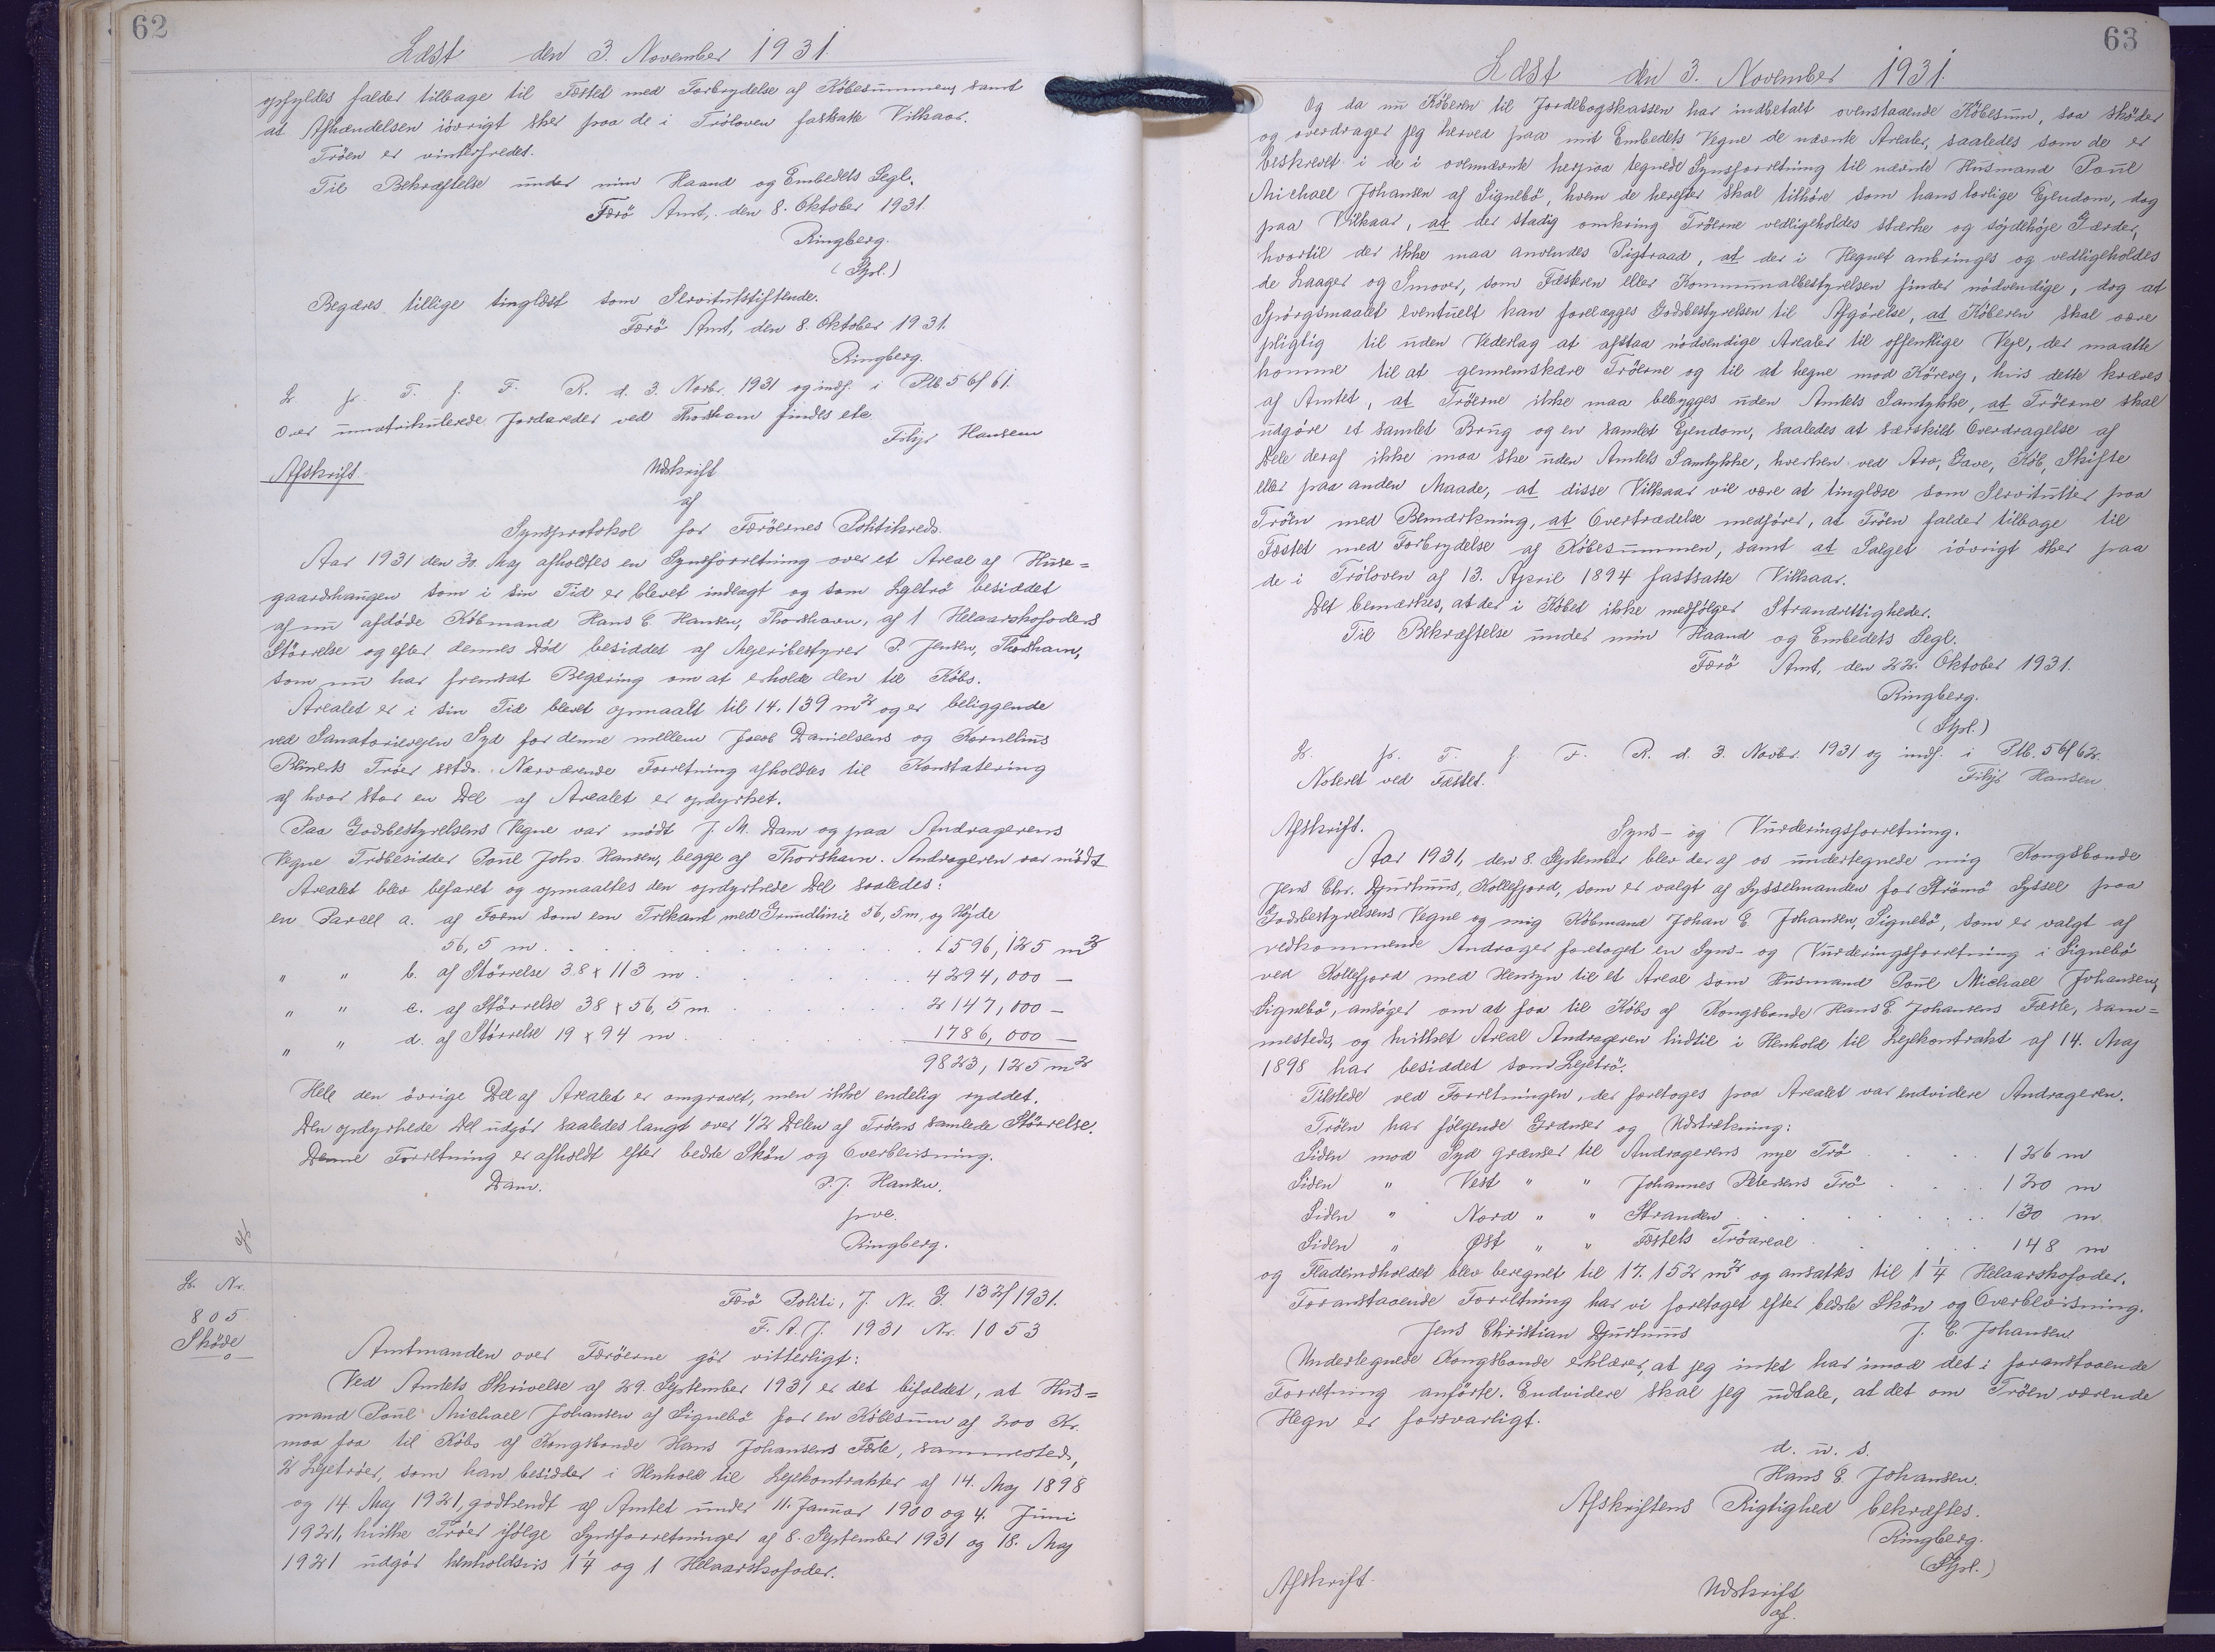 62
Læst den 3. November 1931.
opfyldes falder tilbage til Fæstet med Forbrydelse af Købesummen, samt
at Afhændelsen iøvrigt sker paa de i Trøloven fastsatte Vilkaar.
Trøen er vinterfredet.
Til Bekræftelse under min Haand og Embedets Segl.
Færø Amt, den 8. Oktober 1931
Ringberg.
(Stpl.)
Begæres tillige tinglæst som Servitutstiftende.
Færø Amt, den 8. Oktober 1931.
Ringberg.
L. p. T. f. F. R. d. 3. Novbr. 1931 og indf. i Ptb. 5 bf 61.
Over umatrikulerede Jordareder ved Thorshavn findes etc
Filip Hansen
Afskrift.
Udskrift
af
Synsprotokol for Færøernes Politikreds.
Aar 1931 den 30. Maj afholdtes en Synsforretning over et Areal af Huse=
gaardshaugen som i sin Tid er blevet indlagt og som Lejetrø besiddet
af nu afdøde Købmand Hans C. Hansen, Thorshavn, af 1 Helaarskofoders
Størrelse og efter dennes Død besiddet af Mejeribestyrer P. Jensen, Thorshavn,
som nu har fremsat Begæring om at erholde den til Købs.
Arealet er i sin Tid blevet opmaalt til 14.139 m² og er beliggende
ved Sanatorievejen Syd for denne mellem Jacob Danielsens og Kornelius
Trøer sstds. Nærværende Forretning afholdtes til Konstatering
af hvor stor en Del af Arealet er opdyrket.
Paa Godsbestyrelsens Vegne var mødt J. M. Dam og paa Andragerens
Vegne Trøbesidder Poul Johs. Hansen, begge af Thorshavn. Andrageren var mødt
Arealet blev befaret og opmaaltes den opdyrkede Del saaledes:
en Parcel a. af Form som en Trekant med Grundlinie 56,5 m, og Højde
56,5 m. 1596,125 m²
" " b. af Størrelse 38 x 113 m. 4294,000 —
" " c. af Størrelse 38 x 56,5 m. 2147,000 —
" " d. af Størrelse 19 x 94 m. 1786,000 —
9823,125 m²
Hele den øvrige Del af Arealet er omgravet, men ikke endelig ryddet.
Den opdyrkede Del udgør saaledes langt over 1/2 Delen af Trøens samlede Størrelse.
Denne Forretning er afholdt efter bedste Skøn og Overbevisning.
Dam. P. J. Hansen.
pve.
Ringberg.
L. Nr.
805
Skøde
Færø Politi, J. Nr. G. 132/1931.
F. A. J. 1931 Nr. 1053
Amtmanden over Færøerne gør vitterligt:
Ved Amtets Skrivelse af 29. September 1931 er det bifaldet, at Hus=
mand Poul Michael Johansen af Signebø for en Købesum af 200 Kr.
maa faa til Købs af Kongsbonde Hans Johansens Fæste, sammesteds,
2 Lejetrøer, som han besidder i Henhold til Lejekontrakter af 14. Maj 1898
og 14. Maj 1921, godkendt af Amtet under 11. Januar 1900 og 4. Juni
1921, hvilke Trøer ifølge Synsforretninger af 8. September 1931 og 18. Maj
1921 udgør henholdsvis 1¼ og 1 Helaarskofoder.
63
Læst den 3. November 1931.
Og da nu Køberen til Jordebogskassen har indbetalt ovenstaaende Købesum, saa skøder
og overdrager jeg herved paa mit Embedets Vegne de nævnte Arealer, saaledes som de er
beskrevet i de i ovennævnte herpaa tegnede Synsforretning til nævnte Husmand Poul
Michael Johansen af Signebø, hvem de herefter skal tilhøre som hans lovlige Ejendom, dog
paa Vilkaar, at der stadig omkring Trøerne vedligeholdes stærke og sojdehøje Gærder,
hvortil der ikke maa anvendes Pigtraad, at der i Hegnet anbringes og vedligeholdes
de Laager og Smover, som Fæsteren eller Kommunalbestyrelsen finder nødvendige, dog at
Spørgsmaalet eventuelt kan forelægges Godsbestyrelsen til Afgørelse, at Køberen skal være
pligtig til uden Vederlag at afstaa nødvendige Arealer til offentlige Veje, der maatte
komme til at gennemskære Trøerne og til at hegne mod Kørevej, hvis dette kræves
af Amtet, at Trøerne ikke maa bebygges uden Amtets Samtykke, at Trøerne skal
udgøre et samlet Brug og en samlet Ejendom, saaledes at særskilt Overdragelse af
Dele deraf ikke maa ske uden Amtets Samtykke, hverken ved Arv, Gave, Køb, Skifte
eller paa anden Maade, at disse Vilkaar vil være at tinglæse som Servitutter paa
Trøen med Bemærkning, at Overtrædelse medfører, at Trøen falder tilbage til
Fæstet med Forbrydelse af Købesummen, samt at Salget iøvrigt sker paa
de i Trøloven af 13. April 1894 fastsatte Vilkaar.
Det bemærkes, at der i Købet ikke medfølger Strandrettigheder.
Til Bekræftelse under min Haand og Embedets Segl.
Færø Amt, den 22. Oktober 1931.
Ringberg.
(Stpl.)
L. p. T. f. F. R. d. 3. Novbr. 1931 og indf. i Ptb. 5 bf 62.
Noteret ved Fæstet.
Filip Hansen
Afskrift.
Syns- og Vurderingsforretning.
Aar 1931, den 8. September blev der af os undertegnede mig Kongsbonde
Jens Chr. Djurhuus, Kollefjord, som er valgt af Sysselmanden for Strømø Syssel paa
Godsbestyrelsens Vegne og mig Købmand Johan E. Johansen, Signebø, som er valgt af
vedkommende Andrager foretaget en Syns- og Vurderingsforretning i Signebø
ved Kollefjord med Hensyn til et Areal som Husmand Poul Michael Johansen,
Signebø, ansøger om at faa til Købs af Kongsbonde Hans E. Johansens Fæste, sam=
mesteds, og hvilket Areal Andrageren hidtil i Henhold til Lejekontrakt af 14. Maj
1898 har besiddet som Lejetrø.
Tilstede ved Forretningen, der foretoges paa Arealet var endvidere Andrageren.
Trøen har følgende Grænser og Udstrækning:
Siden mod Syd grænser til Andragerens nye Trø 126 m
Siden " Vest " " Johannes Petersens Trø 120 m
Siden " Nord " " Stranden 130 m.
Siden " Øst " " Fæstets Trøareal 148 m
og Fladeindholdet blev beregnet til 17.152 m² og ansattes til 1¼ Helaarskofoder.
Foranstaaende Forretning har vi foretaget efter bedste Skøn og Overbevisning.
Jens Christian Djurhuus J. E. Johansen
Undertegnede Kongsbonde erklærer, at jeg intet har imod det i foranstaaende
Forretning anførte. Endvidere skal jeg udtale, at det om Trøen værende
Hegn er forsvarligt.
d. u. s.
Hans E. Johansen.
Afskriftens Rigtighed bekræftes.
Ringberg.
(Stpl.)
Afskrift.
Udskrift
af.